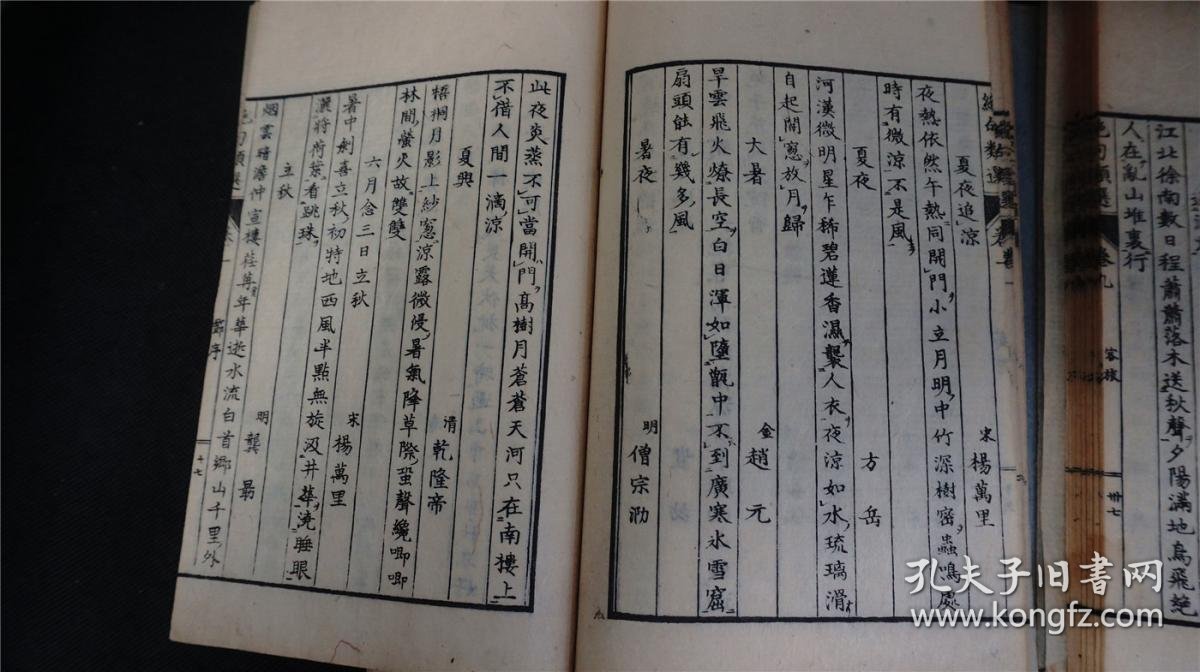 江北徐南數日程蕭蕭落木送秋聲夕陽滿地烏飛絕
人在亂山堆裏行
絕句類選
卷九
客旅
卅七
絕句類選
夏夜追涼
宋 楊萬里
夜熱依然午熱同開門小立月明中竹深樹密蟲鳴處
時有微涼不是風
夏夜
方岳
河漢微明星乍稀碧蓮香濕襲人衣夜涼如水琉璃滑
自起開窻放月歸
大暑
金 趙元
旱雲飛火燎長空白日渾如墮甑中不到廣寒氷雪窟
扇頭能有幾多風
暑夜
明 僧宗泐
此夜炎蒸不可當開門高樹月蒼蒼天河只在南樓上
不借人間一滴涼
夏興
清 乾隆帝
梧桐月影上紗窻涼露微侵暑氣降草際蛩聲纔唧唧
林間螢火故雙雙
六月念三日立秋
宋 楊萬里
暑中剩喜立秋初特地西風半點無旋汲井華澆睡眼
灑將荷葉看跳珠
立秋
明 龔勗
烟雲暗澹仲宣樓荏苒年華逝水流白首鄉山千里外
絕句類選
節序
十七
孔夫子旧书网
www.kongfz.com